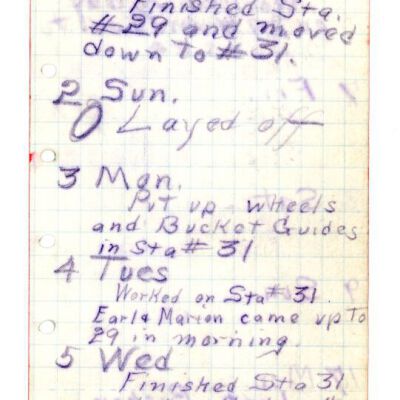 Finished Sta.
#29 and moved
down to #31.
2 Sun.
0 Layed off
3 Mon.
Put up wheels
and Bucket Guides
in Sta #31
4 Tues
Worked on Sta #31.
Earl & Marion came up to
29 in morning.
5 Wed
Finished Sta 31